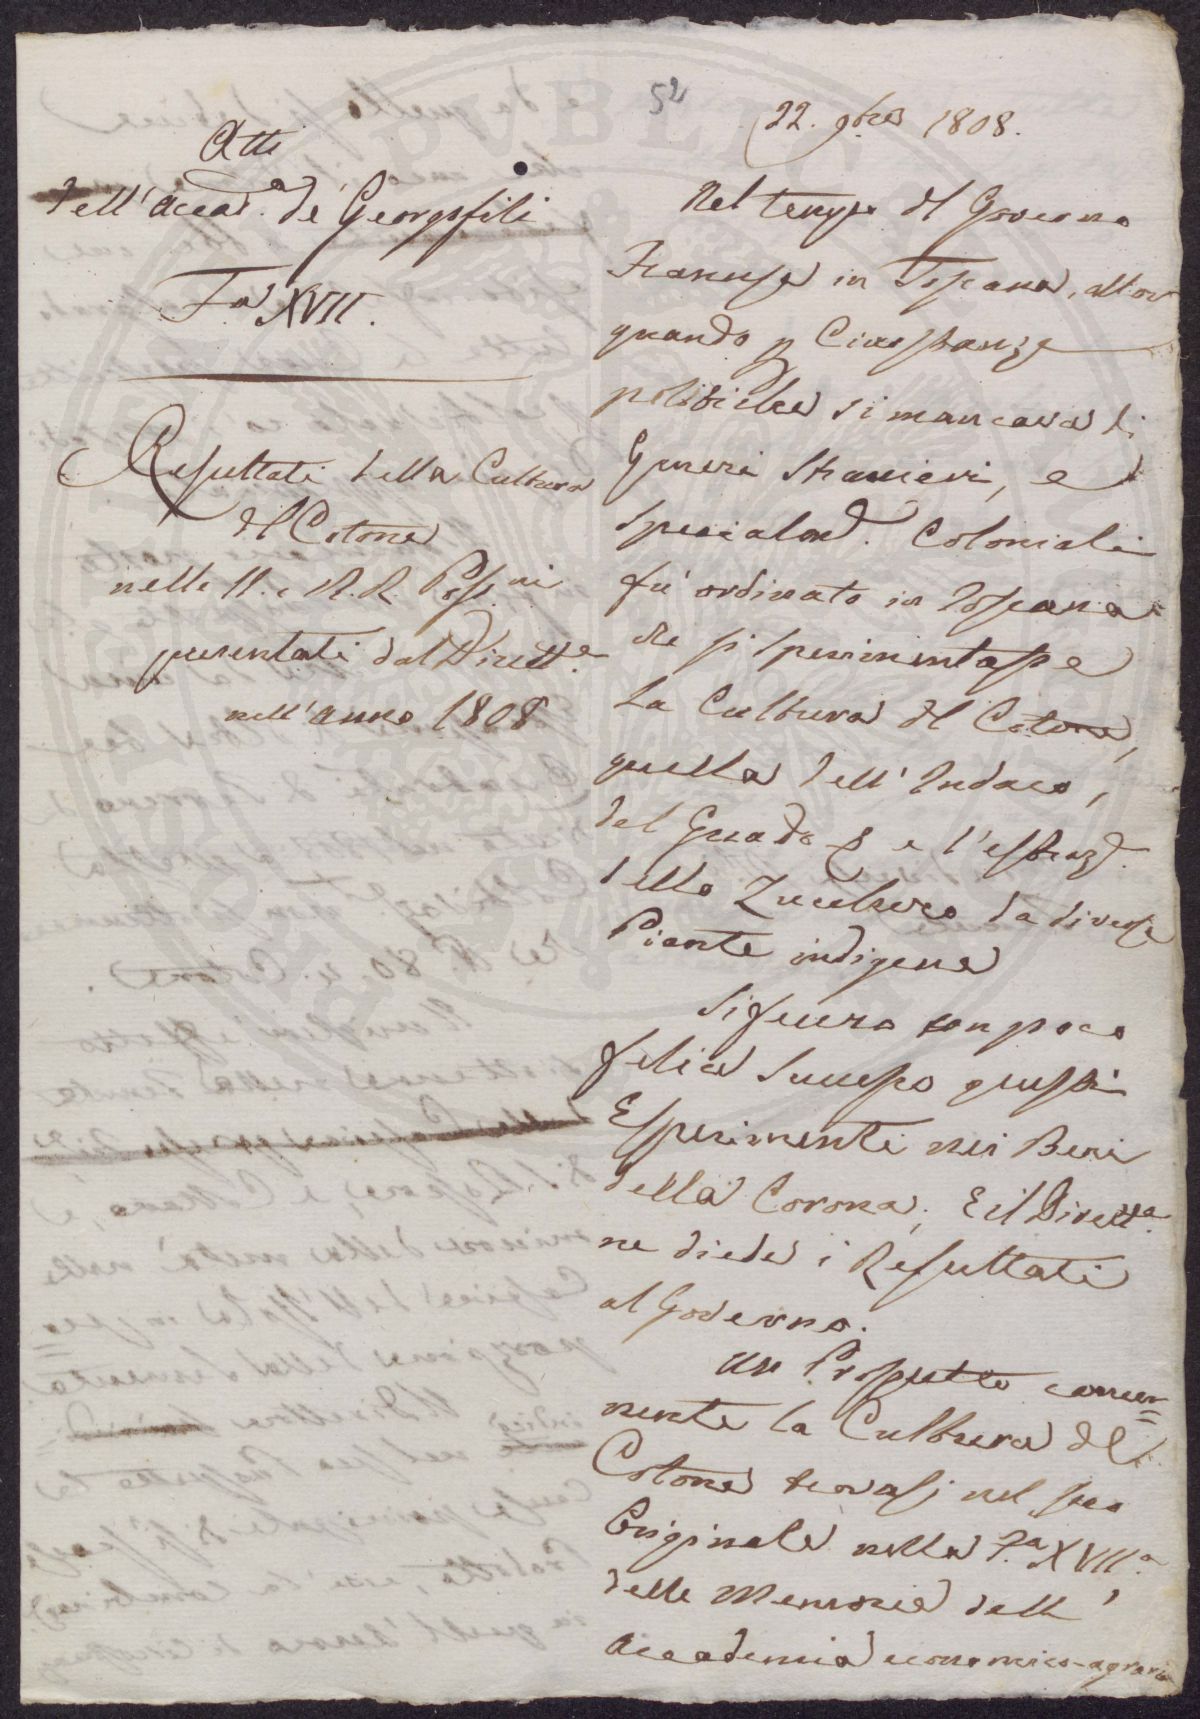 52
Atti
dell'Accad.ª de' Georgofili
Fa XVII.
Resultati della Cultura
del Cotone
nelle II. e RR. Poss.ni
presentati dal Dirett.e
nell'anno 1808
22. 9bre 1808.
Nel tempo del Governo
Francese in Toscana, allor
quando p Circostanze
politiche si mancava di
Generi Stranieri, e
specialm.e Coloniali
fu' ordinato in Toscana
che si sperimentasse
la Cultura del Cotone,
quella dell'Indaco,
del Guado e l'estraz.e
dello Zucchero da diverse
Piante indigene
Si fecero con poco
felice Successo questi
Esperimenti nei Beni
della Corona; E il Dirett.e
ne diede i Resultati
al Governo.
Un Prospetto concer=
nente la Cultura del
Cotone trovasi nel suo
Originale nella F.a XVII.a
delle Memorie dell'
Accademia economico-agraria